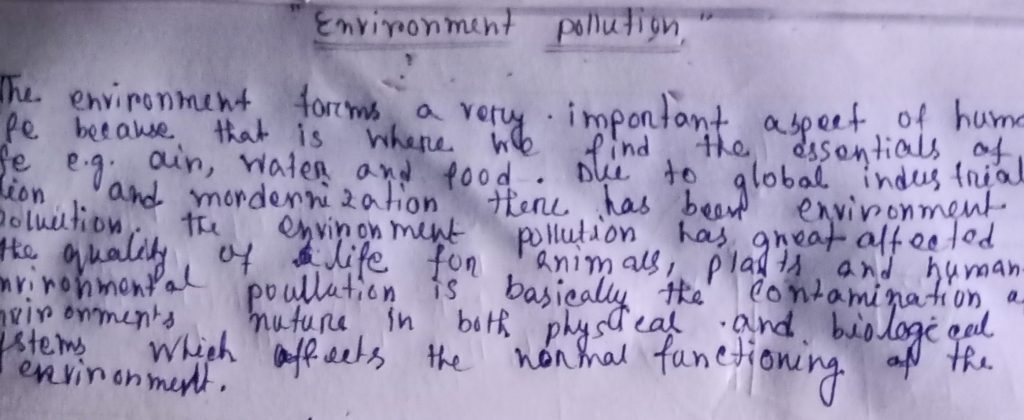 "Environment pollution,"
The environment forms a very important aspect of huma
fe because that is where we find the essentials of
fe e.g. air, water and food. Due to global industrial
tion and mordernization there has been environment
polluction. The environment pollution has great affected
the quality of life for animals, plants and human
nvironmental poullution is basically the contamination a
nvironments nuture in both physical and biological
ystems which affects the normal functioning of the
environment.